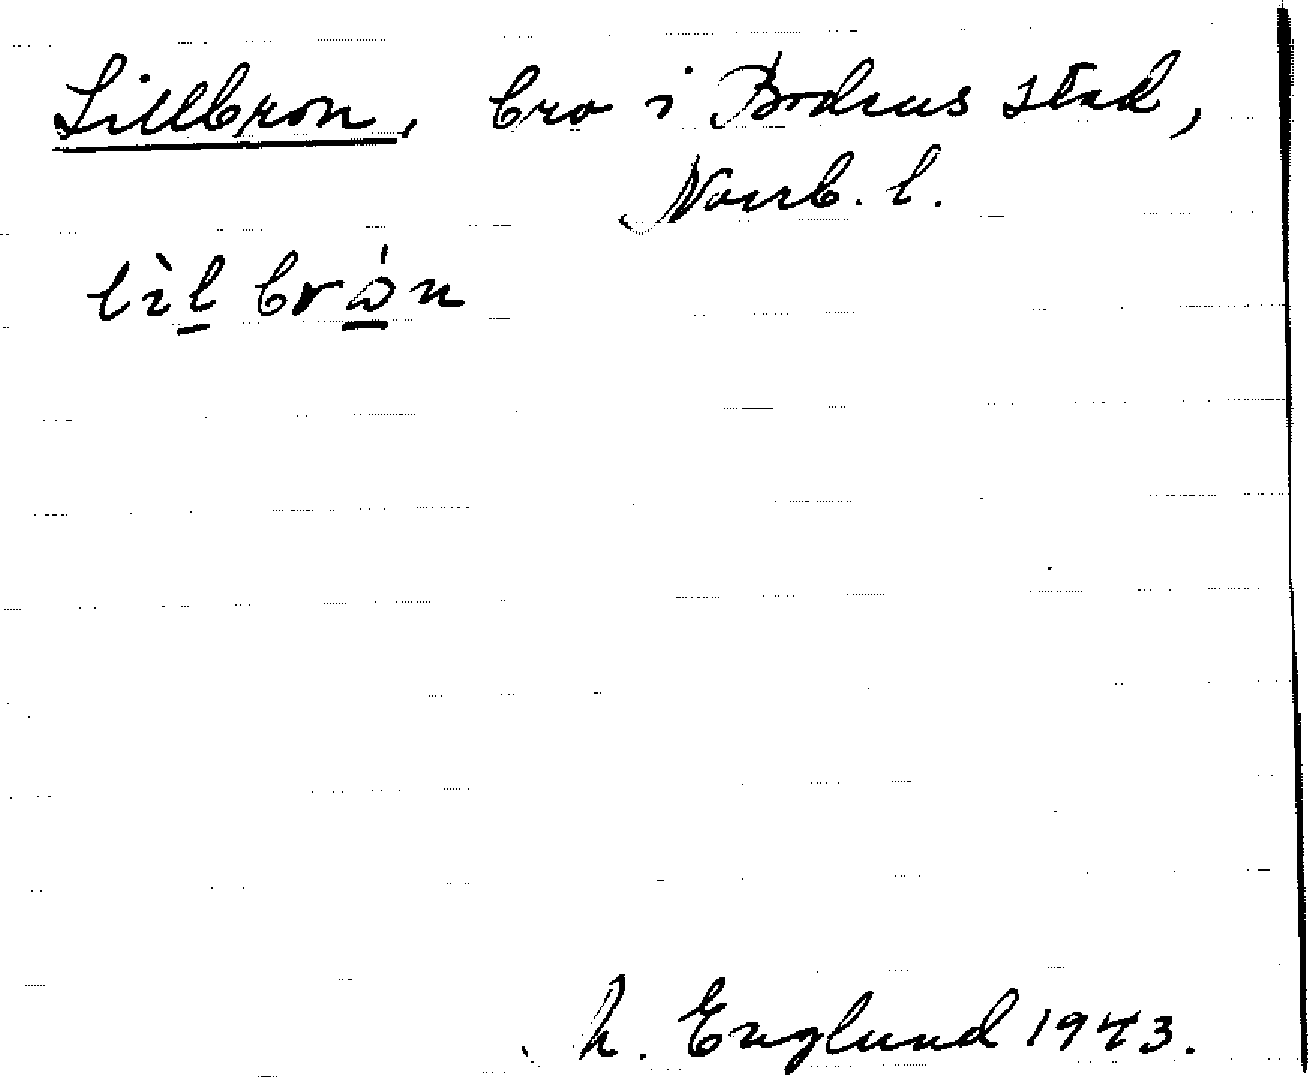 Lillbron, bro i Bodens stad,
Norrb. l.
lìl brån
N. Englund 1943.